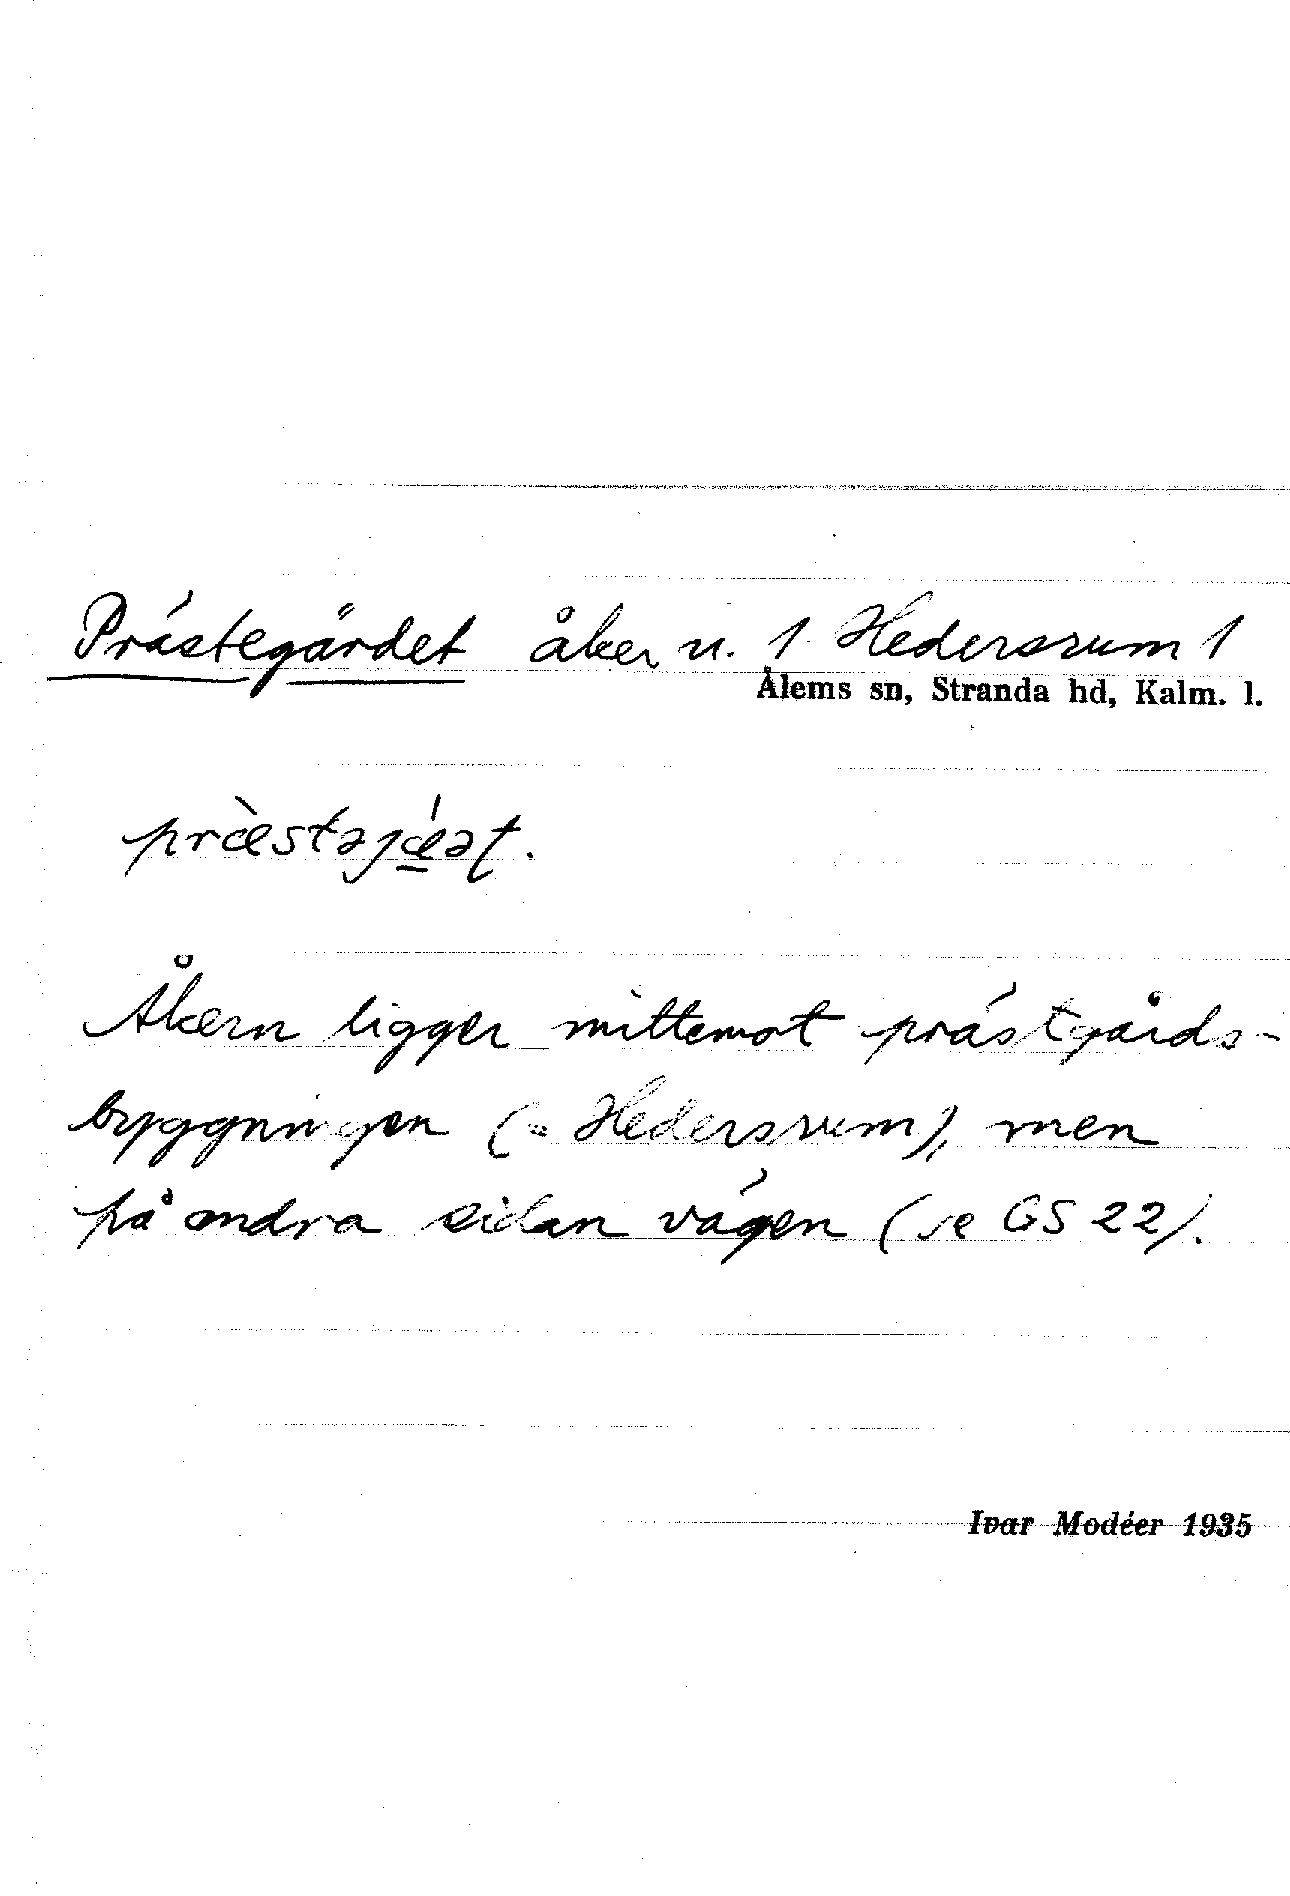 Prästegärdet åker u. 1 Hedersrum 1
Ålems sn, Stranda hd, Kalm. l.
præ̀stəjǽ̲ət.
Åkern ligger mittemot prästgårds-
byggningen (= Hedersrum), men
på andra sidan vägen (se GS 22).
Ivar Modéer 1935